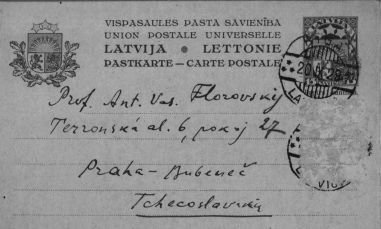 VISPASAULES PASTA SAVIENĪBA
UNION POSTALE UNIVERSELLE
LATVIJA • LETTONIE
PASTKARTE — CARTE POSTALE
Prof. Ant. Vas. Florovskij
Terronská ul. 6, pokoj 27
Praha - Bubeneč
Tchecoslovakie